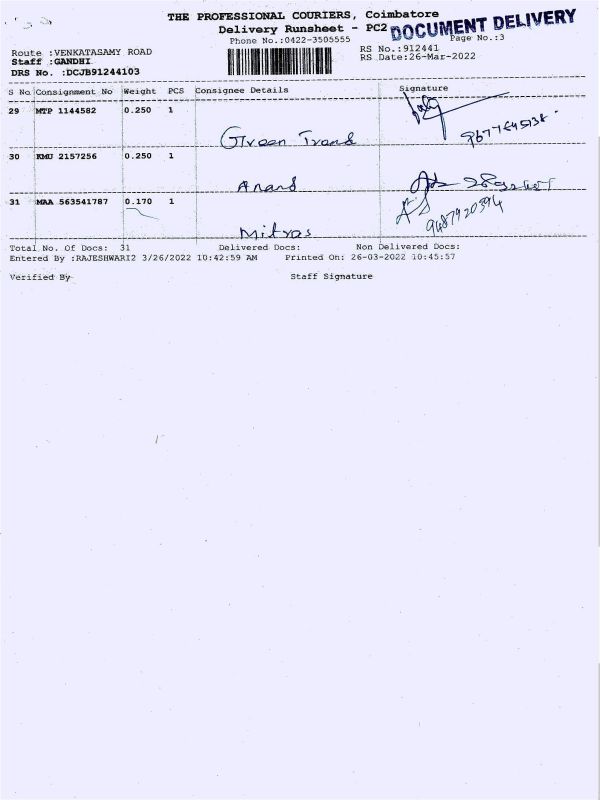 THE PROFESSIONAL COURIERS, Coimbatore
Delivery Runsheet - PC2
DOCUMENT DELIVERY
Phone No.:0422-3505555
Page No.:3
Route :VENKATASAMY ROAD
RS No.:912441
Staff :GANDHI
RS Date:26-Mar-2022
DRS No. :DCJB91244103
S No Consignment No Weight PCS Consignee Details Signature
29 MTP 1144582 0.250 1
Green Trend
9677645138
30 KMU 2157256 0.250 1
Anand
31 MAA 563541787 0.170 1
Mitras
9487920394
Total No. Of Docs: 31 Delivered Docs: Non Delivered Docs:
Entered By :RAJESHWARI2 3/26/2022 10:42:59 AM Printed On: 26-03-2022 10:45:57
Verified By Staff Signature